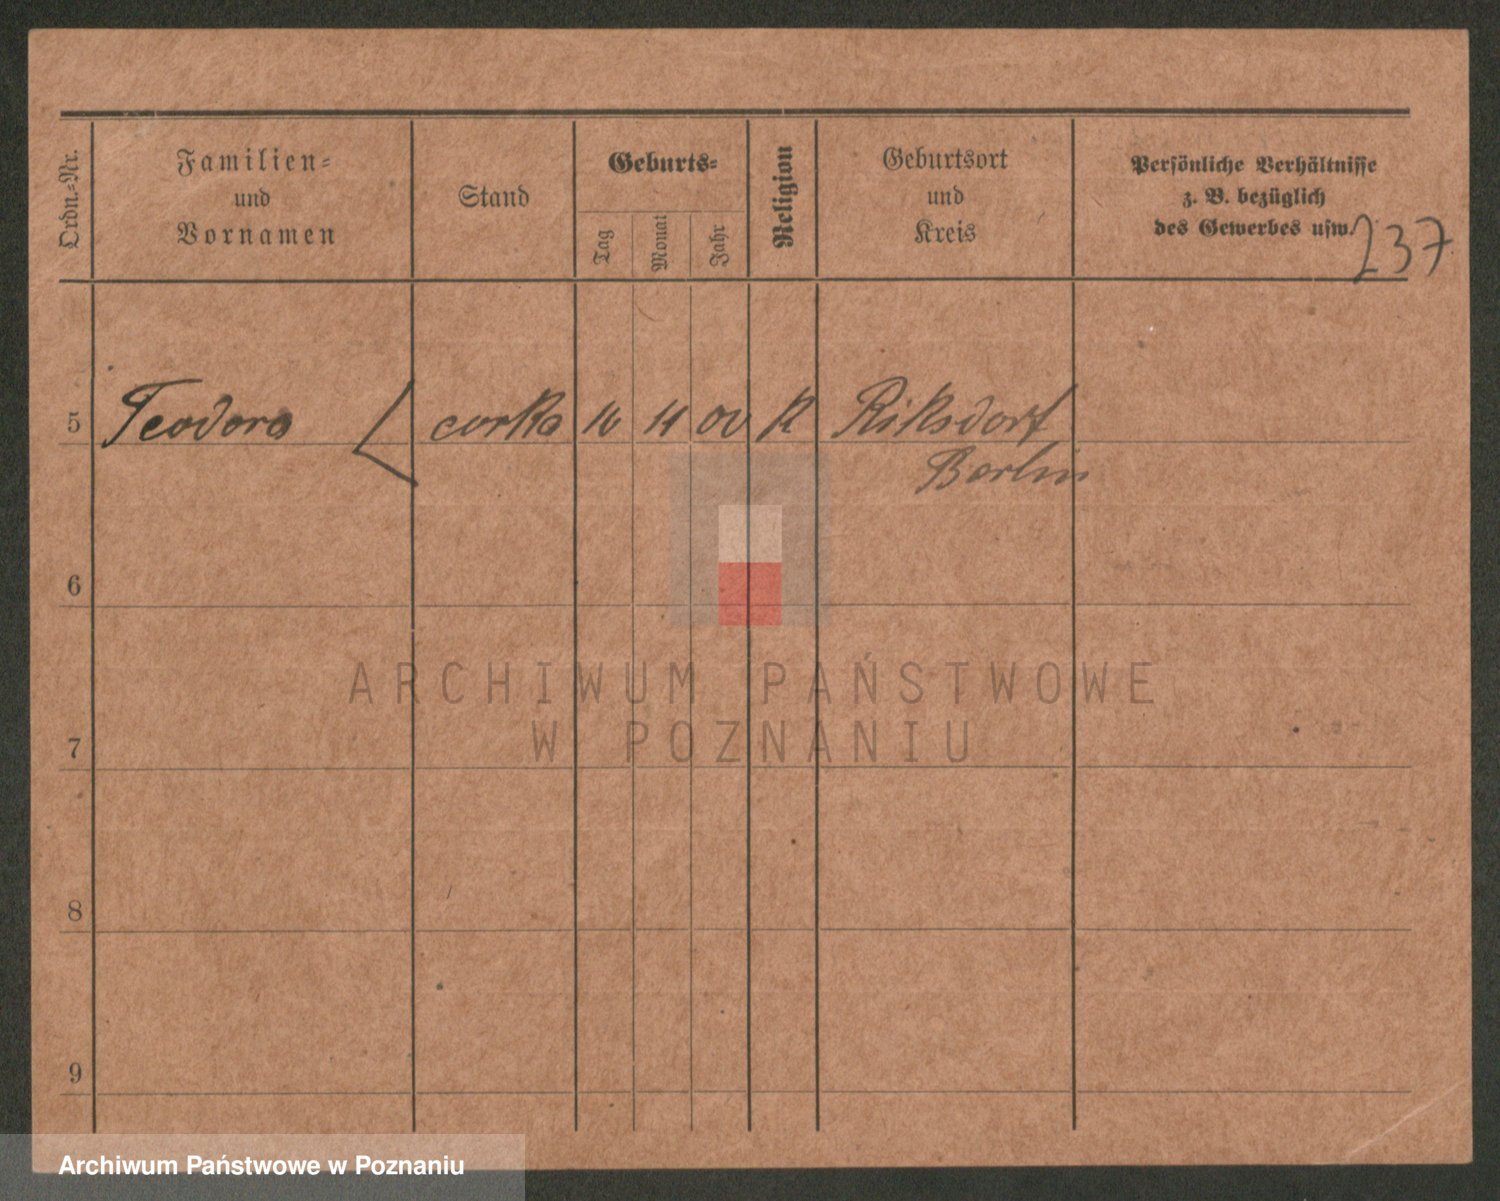 Ordn.-Nr.
Familien-
und
Vornamen
Stand
Geburts-
Tag
Monat
Jahr
Religion
Geburtsort
und
Kreis
Persönliche Verhältnisse
z. B. bezüglich
des Gewerbes usw.
237
5 Teodora corka 16 11 00 K Riksdorf
Berlin
6
7
8
9
ARCHIWUM PAŃSTWOWE
W POZNANIU
Archiwum Państwowe w Poznaniu